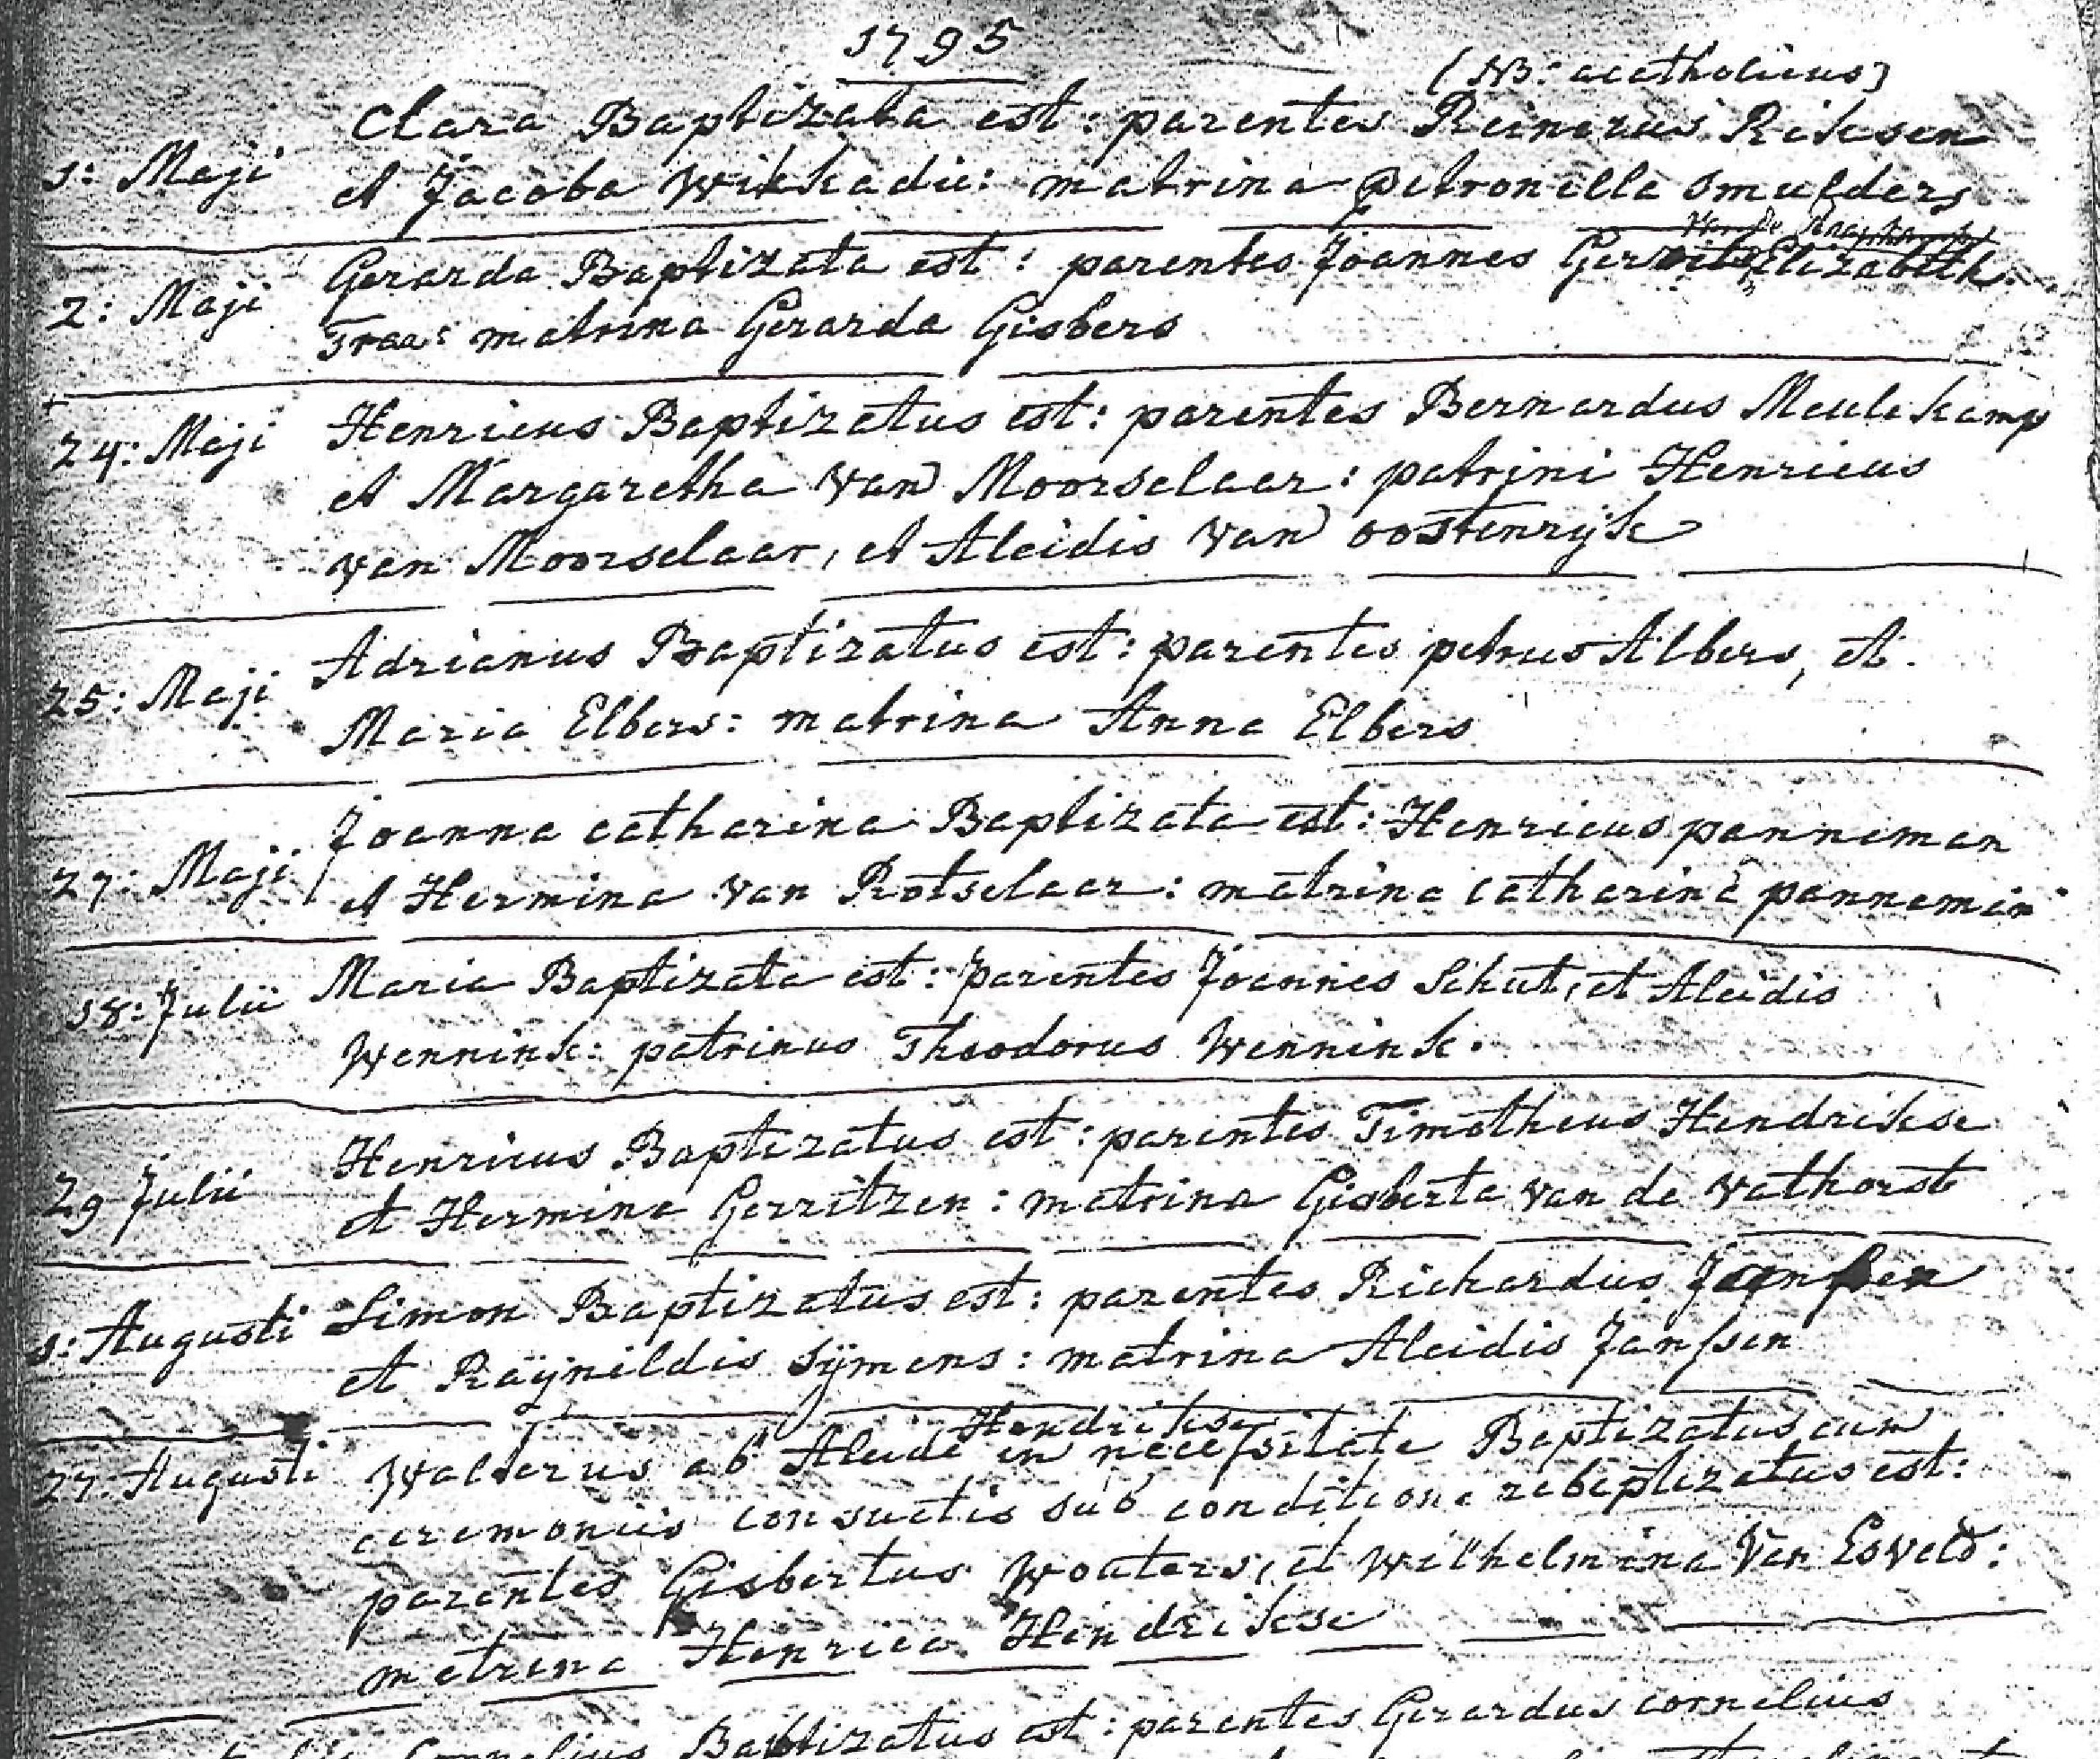 1795
(NB: acatholicus)
1: Maji Clara Baptizata est: parentes Reinerus Riksen
et Jacoba Wikkadie: matrina petronella smulders
van de
2: Maji Gerarda Baptizata est: parentes Joannes Gerrits, Elizabeth
Traa: matrina Gerarda Gisbers
24: Maji Henricus Baptizatus est: parentes Bernardus Meulekamp
et Margaretha van Moorselaar: patrini Henricus
van Moorselaar, et Aleidis van oostenrijk
25: Maji Adrianus Baptizatus est: parentes petrus Albers, et
Maria Elbers: matrina Anna Elbers
27: Maji Joanna catharina Baptizata est: Henricus panneman
et Hermina van Rotselaar: matrina catharina panneman
18: Julii Maria Baptizata est: parentes Joannes Schut, et Aleidis
Wennink: patrinus Theodorus Wennink.
29 Julii Henricus Baptizatus est: parentes Timotheus Hendrikse
et Hermina Gerritzen: matrina Gisberta van de vathorst
1: Augusti Simon Baptizatus est: parentes Richardus Janssen
et Raijnildis Sijmens: matrina Aleidis Janssen
Hendrikse
27: Augusti Walterus ab Aleide in necessitate Baptizatus cum
ceremoniis consuetis sub conditione rebaptizatus est:
parentes Gisbertus Woaters, et Wilhelmina Van Esveld:
matrina Henrica Hendrikse
Cornelius Baptizatus est: parentes Gerardus cornelius